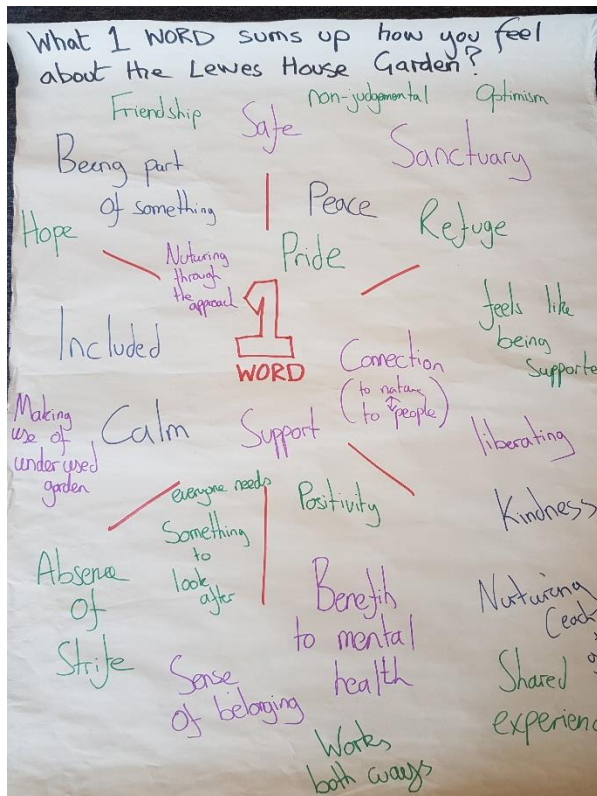 What 1 WORD sums up how you feel
about the Lewes House Garden?
Friendship
Safe
non-judgemental
Optimism
Being part
of something
Peace
Sanctuary
Hope
Nuturing
through
the
approach
Pride
Refuge
1
WORD
Included
Connection
(to nature
to people)
feels like
being
Supporte
Making
use of
underused
garden
Calm
Support
liberating
everyone needs
Something
to
look
after
Positivity
Kindness
Absence
of
Strife
Benefits
to mental
health
Nurturing
(each
Sense
of belonging
Shared
experienc
Works
both ways